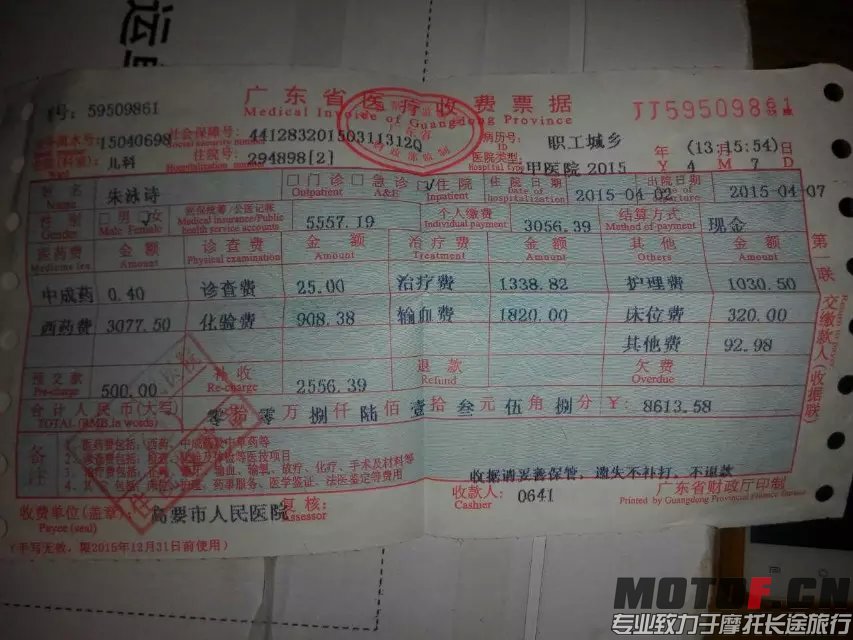 广东省医疗收费票据
Medical Invoice of Guangdong Province
号: 59509861
JJ59509861
15040698 社会保障号: Social security number 441283201503113120 病历号: ID 职工城乡 年 (13:5:54) 日
(科室): 儿科 住院号: Hospitalization number 294898[2] 医院类型: Hospital type 甲医院 2015 Y 4 M 7 D
姓名 Name 朱泳诗 □门诊 Outpatient □急诊 A&E ☑住院 Inpatient 住院日期 Date of Hospitalization 2015-04-02 出院日期 2015-04-07
性别 Gender □男 Male 女 Female 医保统筹/公医记账 Medical insurance/Public health service accounts 5557.19 个人缴费 Individual payment 3056.39 结算方式 Method of payment 现金
医药费 Medicine fee 金额 Amount 诊查费 Physical examination 金额 Amount 治疗费 Treatment 金额 Amount 其他 Others 金额 Amount
中成药 0.40 诊查费 25.00 治疗费 1338.82 护理费 1030.50
西药费 3077.50 化验费 908.38 输血费 1820.00 床位费 320.00
其他费 92.98
预交款 Pre-charge 500.00 补收 Re-charge 2556.39 退款 Refund 欠费 Overdue
合计人民币(大写) TOTAL (RMB in words) 零拾零万捌仟陆佰壹拾叁元伍角捌分 ¥: 8613.58
备注
1、医药费包括:西药、中成药及中草药等
治疗费包括: 输血、输氧、放疗、化疗、手术及材料等
药事服务、医学签证、法医鉴定等费用
收据请妥善保管，遗失不补打、不退款
收费单位(盖章) Payee (seal) 高要市人民医院 复核: Assessor 收款人: Cashier 0641 广东省财政厅印制
Printed by Guangdong Provincial Finance Bureau
(手写无效，限2015年12月31日前使用)
第一联 交缴款人(收据联)
MOTOF.CN
专业致力于摩托长途旅行